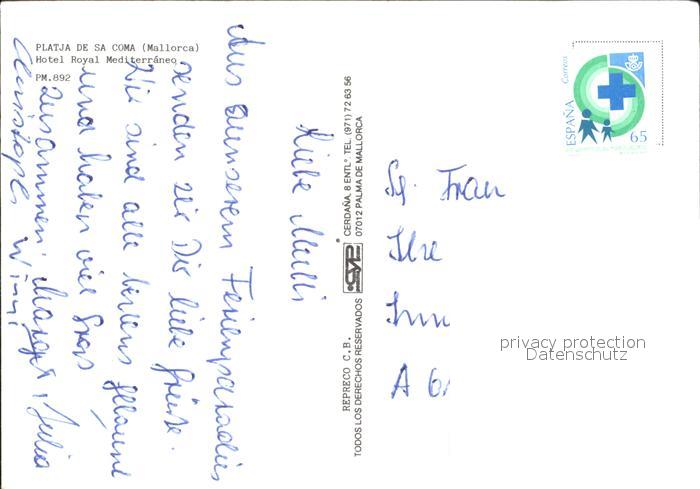 PLATJA DE SA COMA (Mallorca)
Hotel Royal Mediterráneo
PM.892
Liebe Mutti
Aus unserem Ferienparadies
senden wir Dir liebe Grüsse.
Wir sind alle bestens gelaunt
und haben viel Spass
zusammen. Margit, Julia
Christoph Winni
REPRECO C.B.
TODOS LOS DERECHOS RESERVADOS
CERDAÑA, 8 ENTL°. TEL. (971) 72 63 56
07012 PALMA DE MALLORCA
Correos
ESPAÑA
65
Sg. Frau
Ilse
A 6
privacy protection
Datenschutz